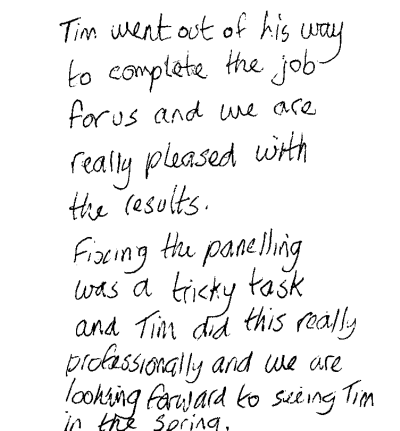 Tim went out of his way
to complete the job
for us and we are
really pleased with
the results.
Fixing the panelling
was a tricky task
and Tim did this really
professionally and we are
looking forward to seeing Tim
in the spring.